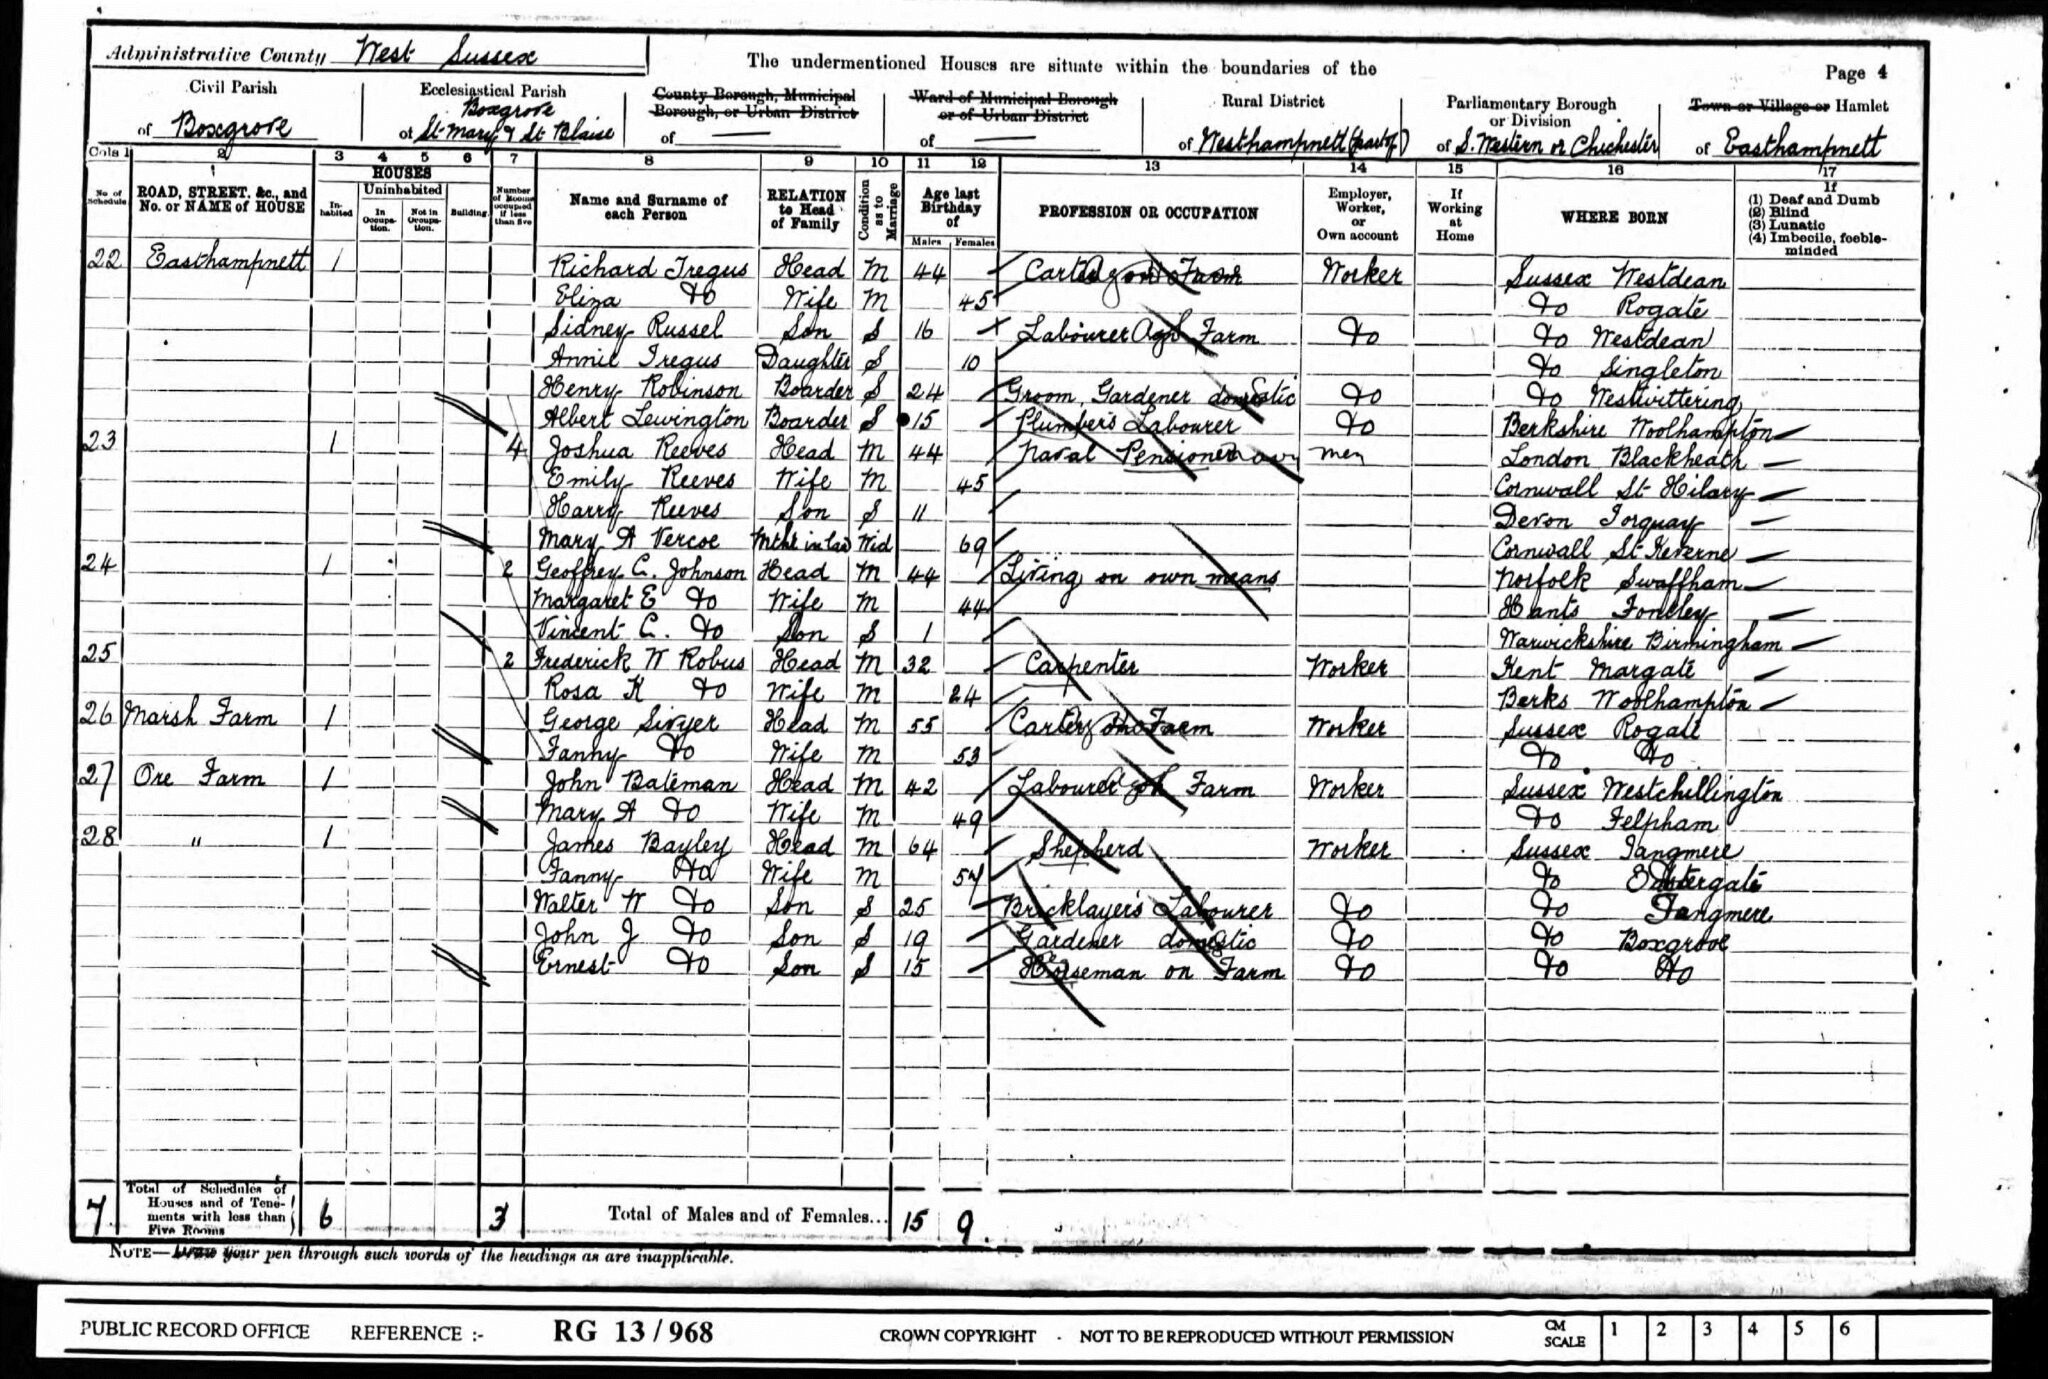 Administrative County West Sussex
The undermentioned Houses are situate within the boundaries of the
Page 4
Civil Parish
of Boxgrove
Ecclesiastical Parish
Boxgrove
of St Mary & St Blaise
County Borough, Municipal
Borough, or Urban District
of —
Ward of Municipal Borough
or of Urban District
of —
Rural District
of Westhampnett (part of)
Parliamentary Borough
or Division
of S. Western or Chichester
Town or Village or Hamlet
of Easthampnett
Cols 1 2 3 4 5 6 7 8 9 10 11 12 13 14 15 16 17
No of Schedule
ROAD, STREET, &c., and
No. or NAME of HOUSE
HOUSES
Inhabited
Uninhabited
In Occupation.
Not in Occupation.
Building.
Number of Rooms occupied if less than five
Name and Surname of
each Person
RELATION
to Head
of Family
Condition as to Marriage
Age last
Birthday
of
Males Females
PROFESSION OR OCCUPATION
Employer,
Worker,
or
Own account
If
Working
at
Home
WHERE BORN
If
(1) Deaf and Dumb
(2) Blind
(3) Lunatic
(4) Imbecile, feeble-
minded
22 Easthampnett 1 Richard Tregus Head M 44 Carter on Farm Worker Sussex Westdean
Eliza Do Wife M 45 Do Rogate
Sidney Russel Son S 16 Labourer Agl Farm Do Do Westdean
Annie Tregus Daughter S 10 Do Singleton
Henry Robinson Boarder S 24 Groom, Gardener domestic Do Do Westwittering
Albert Lewington Boarder S 15 Plumber's Labourer Do Berkshire Woolhampton
23 1 4 Joshua Reeves Head M 44 Naval Pensioner London Blackheath
Emily Reeves Wife M 45 Cornwall St Hilary
Harry Reeves Son S 11 Devon Torquay
Mary A Vercoe Mthr in law Wid 69 Cornwall St Keverne
24 1 2 Geoffrey C. Johnson Head M 44 Living on own means Norfolk Swaffham
Margaret E Do Wife M 44 Hants Fontley
Vincent C. Do Son S 1 Warwickshire Birmingham
25 2 Frederick W Robus Head M 32 Carpenter Worker Kent Margate
Rosa K Do Wife M 24 Berks Woolhampton
26 Marsh Farm 1 George Sivyer Head M 55 Carter on Farm Worker Sussex Rogate
Fanny Do Wife M 53 Do Do
27 Ore Farm 1 John Bateman Head M 42 Labourer Farm Worker Sussex Westchillington
Mary A Do Wife M 49 Do Felpham
28 " 1 James Bayley Head M 64 Shepherd Worker Sussex Tangmere
Fanny Do Wife M 57 Do Eastergate
Walter W Do Son S 25 Bricklayer's Labourer Do Do Tangmere
John J Do Son S 19 Gardener domestic Do Do Boxgrove
Ernest Do Son S 15 Horseman on Farm Do Do Do
7 Total of Schedules of
Houses and of Tene-
ments with less than
Five Rooms 6 3 Total of Males and of Females... 15 9
NOTE—Draw your pen through such words of the headings as are inapplicable.
PUBLIC RECORD OFFICE REFERENCE :- RG 13 / 968 CROWN COPYRIGHT · NOT TO BE REPRODUCED WITHOUT PERMISSION CM SCALE 1 2 3 4 5 6